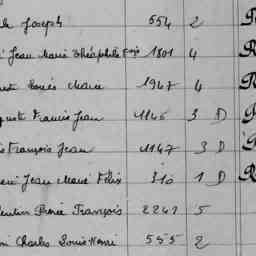 Joseph 554 2
Jean Marie Théophile frçois 1801 4 R
Louis Marie 1947 4 R
Francis Jean 1145 3 D
François Jean 1147 3 D R
Jean Marie Félix 310 1 D R
Pierre François 2241 5
Charles Louis Henri 555 2